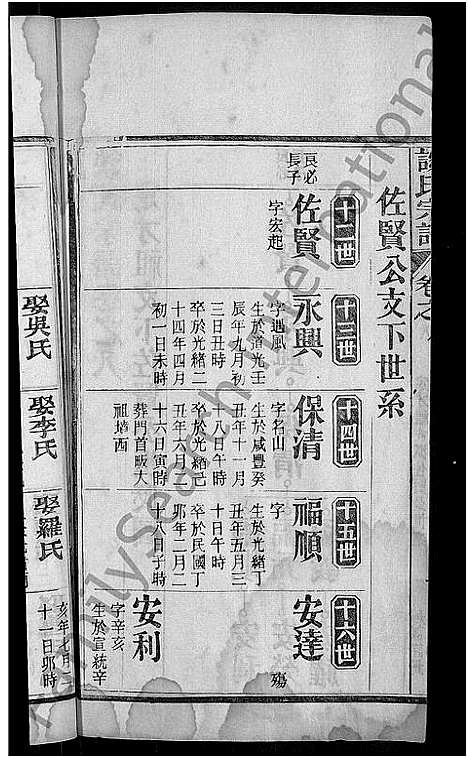 譚氏宗譜
卷之
佐賢公支下世系
十二世
十三世
十四世
十五世
十六世
良必
長子
佐賢
字宏起
永興
字遇風
生於道光壬
辰年九月初
三日丑時
卒於光緒二
十四年四月
初一日未時
保清
字名山
生於咸豐癸
丑年十一月
十八日午時
卒於光緒己
丑年六月二
十六日寅時
葬門首畈大
祖墳西
福順
字
生於光緒丁
丑年五月三
十日午時
卒於民國丁
卯年二月二
十八日子時
安達
殤
安利
字辛亥
生於宣統辛
亥年七月
十一日卯時
娶吳氏
娶李氏
娶羅氏
FamilySearch International